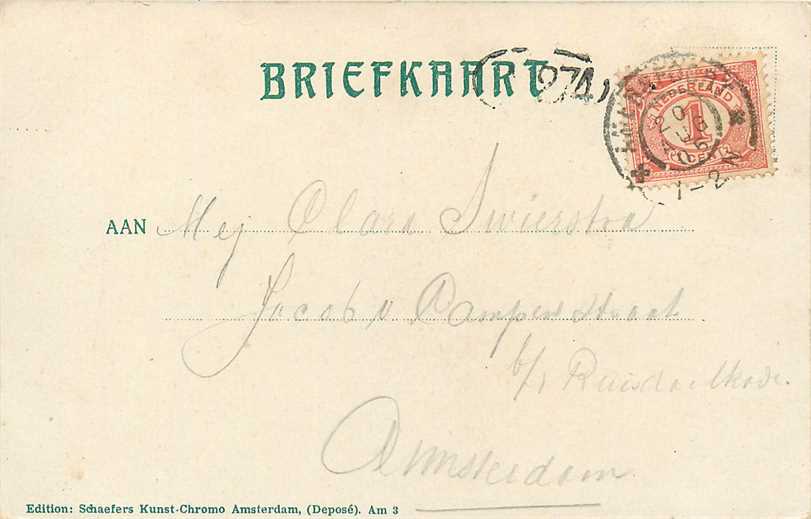 BRIEFKAART
274
NEDERLAND
1
CENT
1-2 N
AAN Mej Clara Swierstra
Jacob v Campenstraat
b/d Ruisdaelkade.
Amsterdam
Edition: Schaefers Kunst-Chromo Amsterdam, (Deposé). Am 3